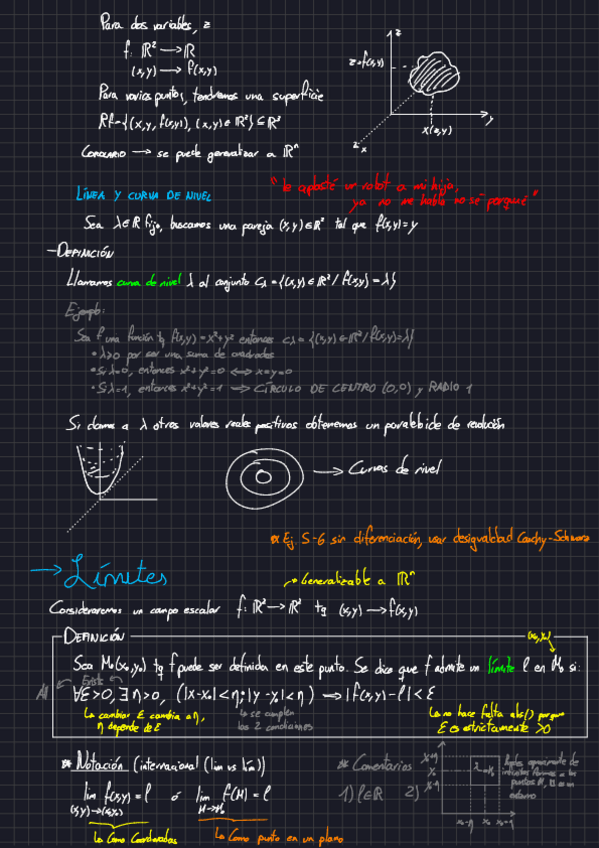 Para dos variables, z
f: ℝ² → ℝ
(x,y) → f(x,y)
Para varios puntos, tendremos una superficie
Rf={(x,y, f(x,y)), (x,y)∈ℝ²}⊆ℝ³
COROLARIO → se puede generalizar a ℝⁿ
z
z=f(x,y)
y
X(x,y)
x
"le aplasté un robot a mi hija,
ya no me habla no sé porqué"
LÍNEA Y CURVA DE NIVEL
Sea λ∈ℝ fijo, buscamos una pareja (x,y)∈ℝ² tal que f(x,y)=y
-DEFINICIÓN
Llamamos curva de nivel λ al conjunto Cλ={(x,y)∈ℝ²/ f(x,y)=λ}
Ejemplo:
Sea f una función tq f(x,y)=x²+y² entonces Cλ={(x,y)∈ℝ²/f(x,y)=λ}
• λ>0 por ser una suma de cuadrados
• Si λ=0, entonces x²+y²=0 ⟺ x=y=0
• Si λ=1, entonces x²+y²=1 ⟹ CÍRCULO DE CENTRO (0,0) y RADIO 1
Si damos a λ otros valores reales positivos obtenemos un paraboloide de revolución
→ Curvas de nivel
* Ej 5-6 sin diferenciación, usar desigualdad Cauchy-Schwarz
→ Límites
→ Generalizable a ℝⁿ
Consideraremos un campo escalar f: ℝ² → ℝ² tq (x,y) → f(x,y)
DEFINICIÓN
(x₀,y₀)
Sea M₀(x₀,y₀) tq f puede ser definida en este punto. Se dice que f admite un límite l en M₀ si:
Existe
∀ε>0, ∃η>0, (|x-x₀|<η; |y-y₀|<η) ⟹ |f(x,y)-l|<ε
↳ cambiar ε cambia a η,
η depende de ε
↳ se cumplen
las 2 condiciones
↳ no hace falta abs() porque
ε es estrictamente >0
* Notación (internacional (lim vs lím))
lim f(x,y)=l ó lim f(M)=l
(x,y)→(x₀,y₀) M→M₀
↳ Como Coordenadas
↳ Como punto en un plano
* Comentarios
1) l∈ℝ 2)